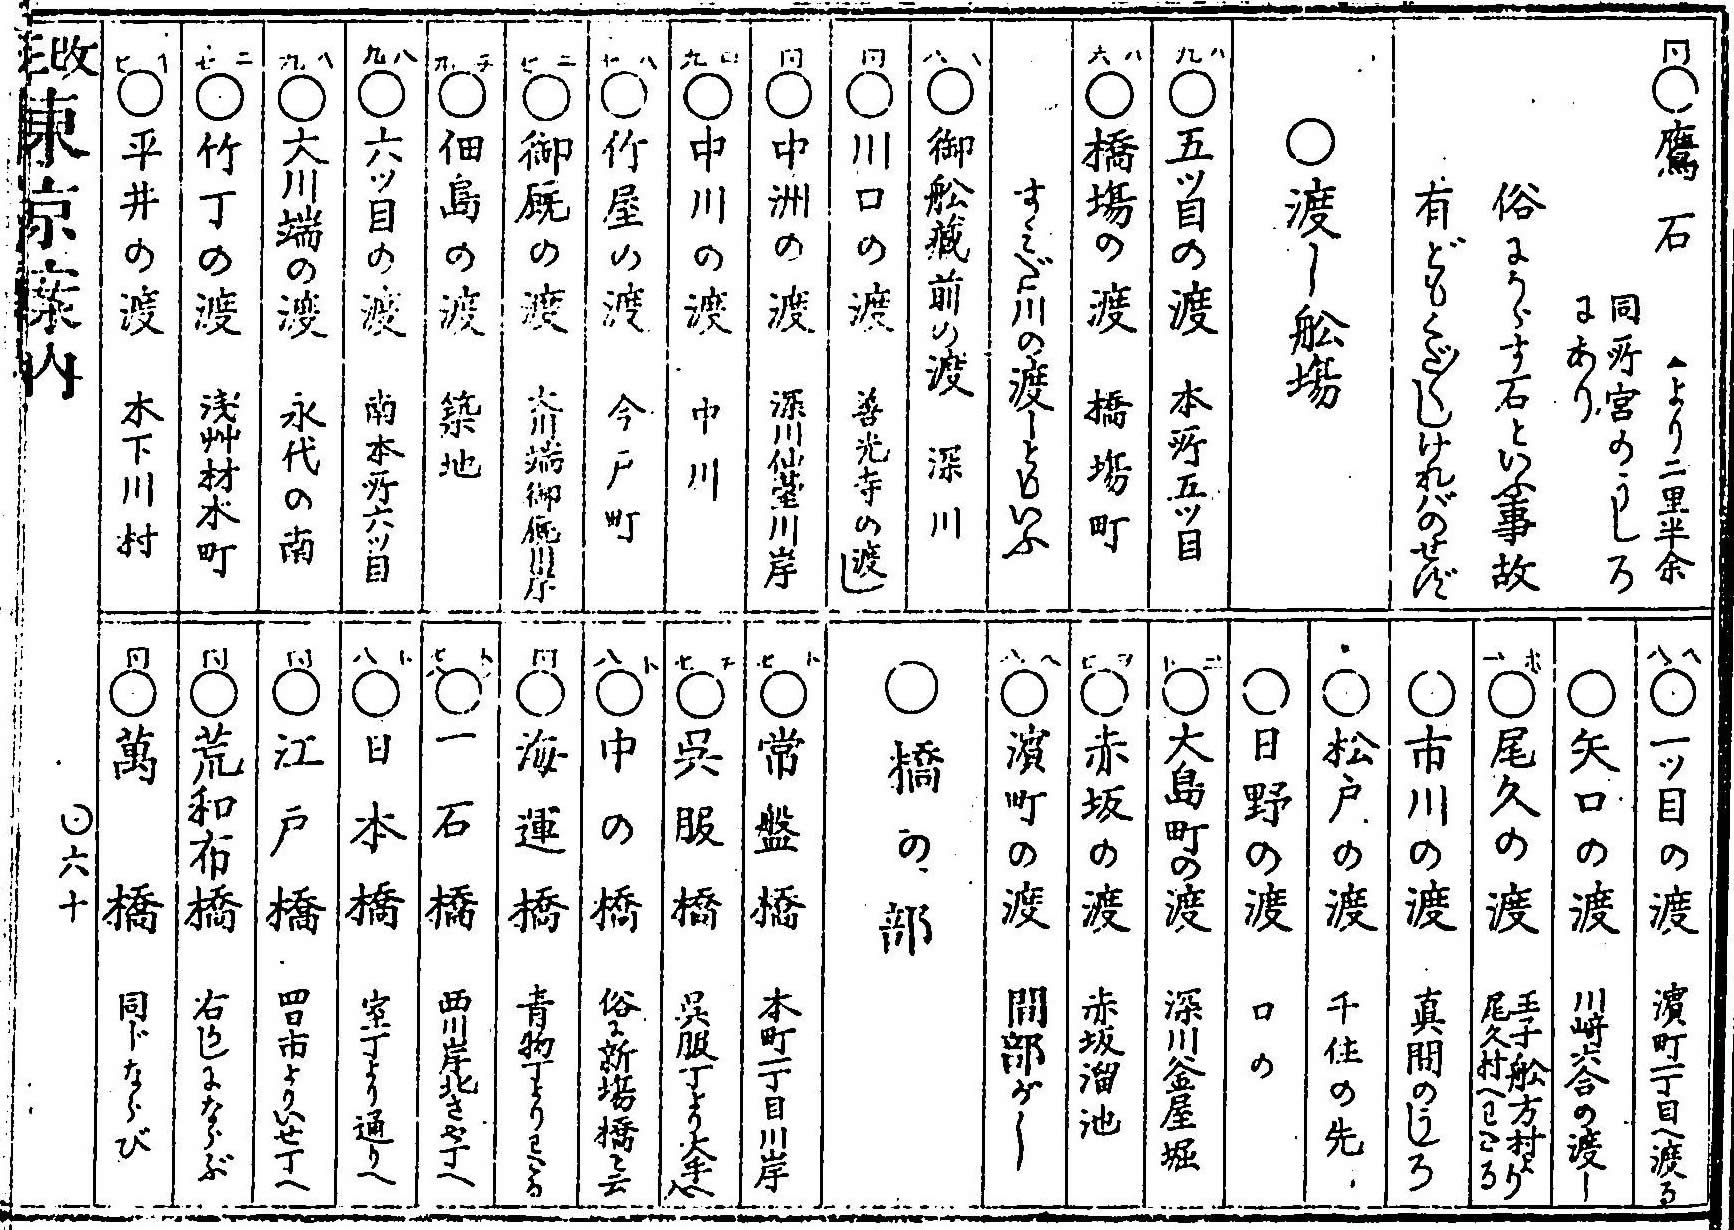 同○鷹石 ▲より二里半余
同所宮のうしろ
にあり
俗にうらす石といふ事故
有どもくだ〳〵しければのせず
○渡し舩場
八九○五ツ目の渡 本所五ツ目
八六○橋塲の渡 橋塲町
すみだ川の渡しともいふ
八八○御舩蔵前の渡 深川
同○川口の渡 善光寺の渡し
同○中洲の渡 深川仙臺川岸
九○中川の渡 中川
八○竹屋の渡 今戸町
二七○御厩の渡 大川端御厩川岸
九○佃島の渡 築地
八九○六ツ目の渡 南本所六ツ目
八九○大川端の渡 永代の南
二七○竹丁の渡 浅艸材木町
七○平井の渡 木下川村
八八○一ツ目の渡 濱町一丁目へ渡る
○矢口の渡 川﨑六合の渡し
○尾久の渡 王子舩方村より
尾久村へわたる
○市川の渡 真間のうしろ
○松戸の渡 千住の先
○日野の渡 口の
○大島町の渡 深川釜屋堀
○赤坂の渡 赤坂溜池
八八○濱町の渡 間部がし
○橋の部
ト七○常盤橋 本町一丁目川岸
七○呉服橋 呉服丁より大手へ入
ト八○中の橋 俗に新塲橋と云
同○海運橋 青物丁よりわたる
○一石橋 西川岸北さや丁へ
ト八○日本橋 室丁より通りへ
同○江戸橋 四日市よりいせ丁へ
同○荒和布橋 右同しにならぶ
同○萬橋 同じならび
改正東京案内
○六十